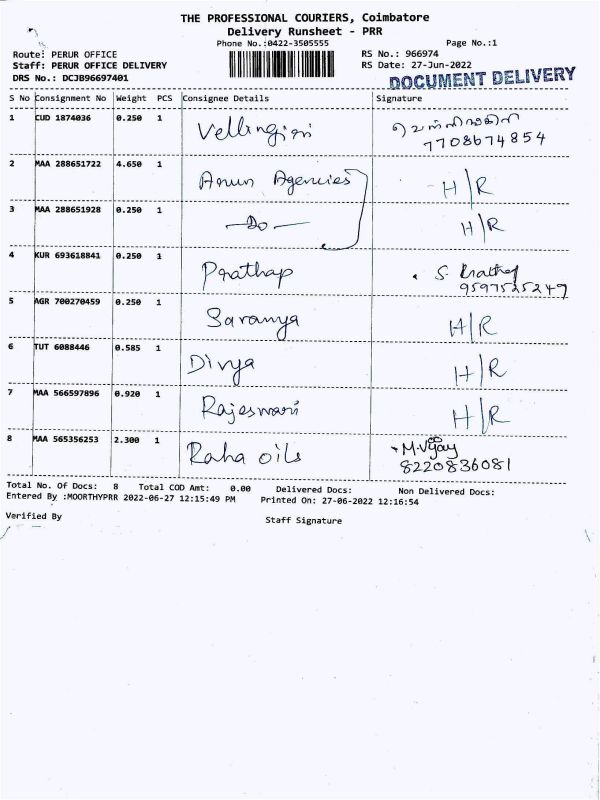 THE PROFESSIONAL COURIERS, Coimbatore
Delivery Runsheet - PRR
Phone No.:0422-3505555 Page No.:1
Route: PERUR OFFICE RS No.: 966974
Staff: PERUR OFFICE DELIVERY RS Date: 27-Jun-2022
DRS No.: DCJB96697401 DOCUMENT DELIVERY
S No Consignment No Weight PCS Consignee Details Signature
1 CUD 1874036 0.250 1 Vellingiri
7708674854
2 MAA 288651722 4.650 1 Arun Agencies H/R
3 MAA 288651928 0.250 1 —Do— H/R
4 KUR 693618841 0.250 1 Prathap S. Prathap
9597525247
5 AGR 700270459 0.250 1 Saranya H/R
6 TUT 6088446 0.585 1 Divya H/R
7 MAA 566597896 0.920 1 Rajeswari H/R
8 MAA 565356253 2.300 1 Raha oils M.Vijay
8220836081
Total No. Of Docs: 8 Total COD Amt: 0.00 Delivered Docs: Non Delivered Docs:
Entered By :MOORTHYPRR 2022-06-27 12:15:49 PM Printed On: 27-06-2022 12:16:54
Verified By Staff Signature